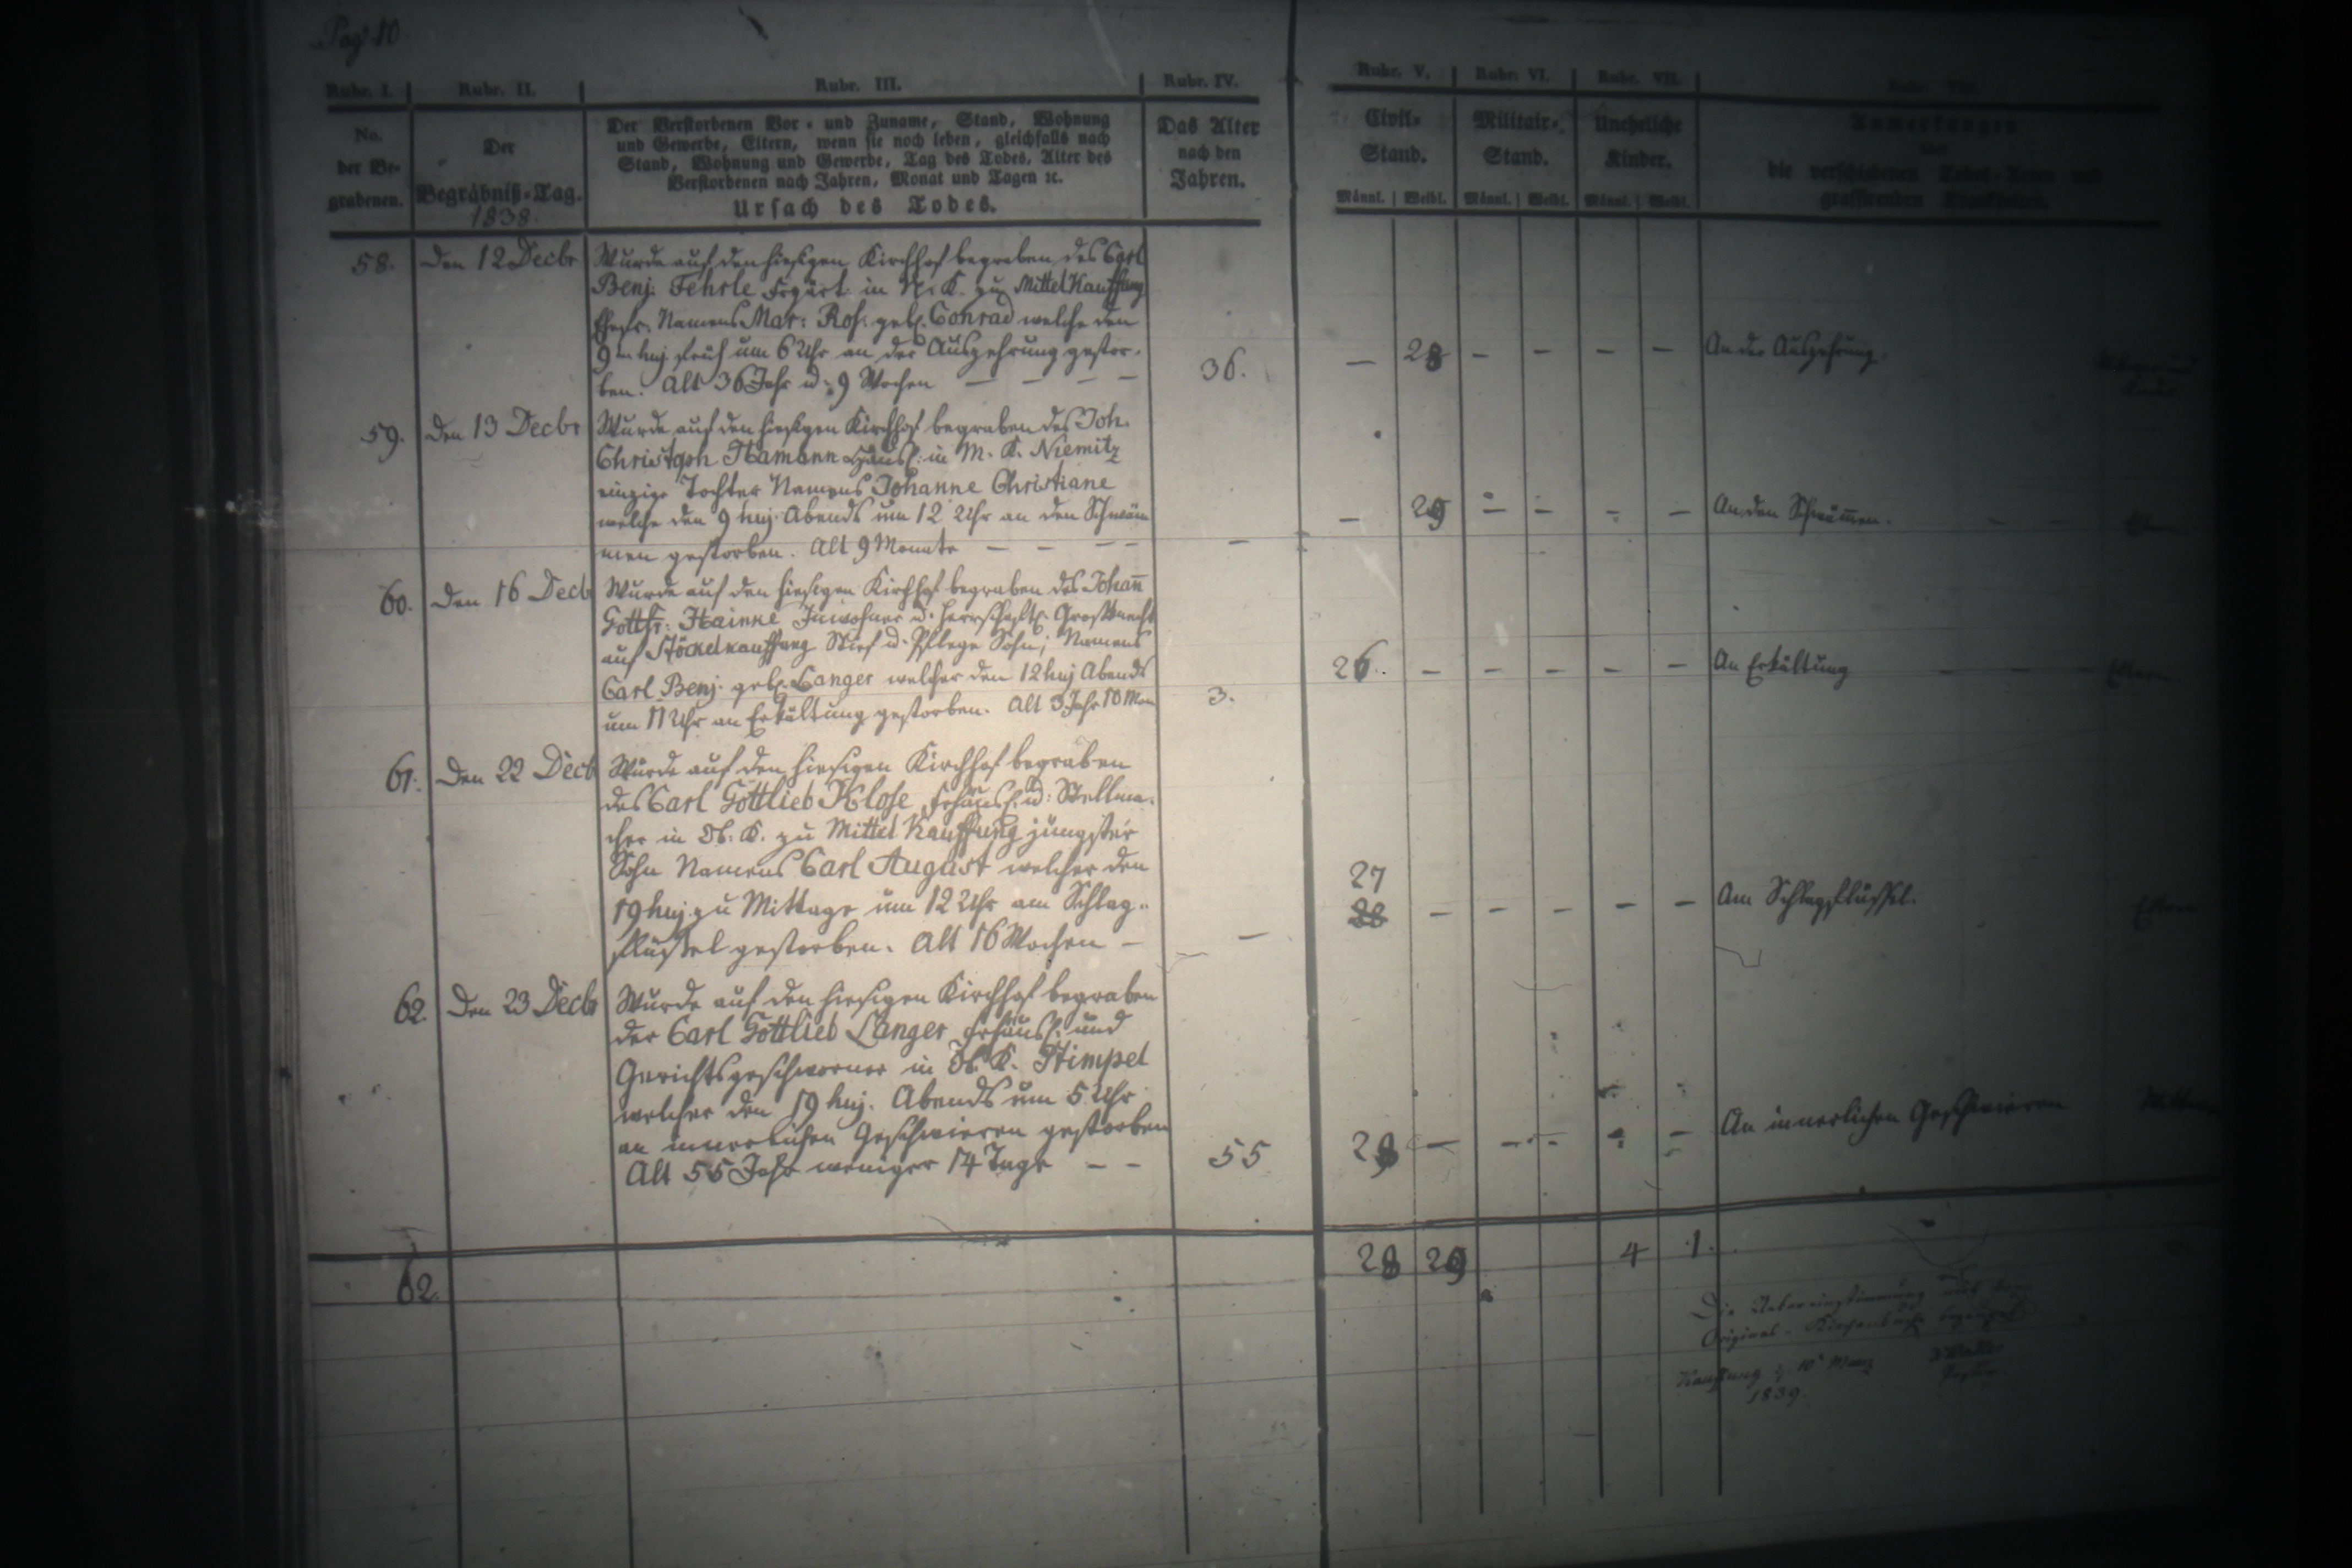 Pag 10.
Rubr. I. Rubr. II. Rubr. III. Rubr. IV. Rubr. V. Rubr. VI. Rubr. VII. Rubr. VIII.
No. der Be-grabenen.
Der Begräbniß-Tag.
1838.
Der Verstorbenen Vor- und Zuname, Stand, Wohnung
und Gewerbe, Eltern, wenn sie noch leben, gleichfalls nach
Stand, Wohnung und Gewerbe, Tag des Todes, Alter des
Verstorbenen nach Jahren, Monat und Tagen ꝛc.
Ursach des Todes.
Das Alter
nach den
Jahren.
Civil-
Stand.
Militair-
Stand.
Uneheliche
Kinder.
Männl. Weibl. Männl. Weibl. Männl. Weibl.
Anmerkungen
über
die verschiedenen Todes-Arten und
grassirenden Krankheiten.
58. Den 12 Decbr Wurde auf den hiesigen Kirchhof begraben des Carl
Benj. Fehrle Frgärt. in N. K. zu Mittel Kauffung
Ehefr. Namens Mar: Ros: geb. Conrad welche den
9ten huj. früh um 6 Uhr an der Auszehrung gestor-
ben. Alt 36 Jahr u. 9 Wochen — — — —
36. — 28 — — — — An der Auszehrung.
59. Den 13 Decbr Wurde auf den hiesigen Kirchhof begraben des Joh.
Christoph Hamann Häusl. in M. K. Niemitz
einzige Tochter Namens Johanne Christiane
welche den 9 huj. Abends um 12 Uhr an den Schwäm
men gestorben. Alt 9 Monate — — — —
— — 29 — — — — An den Schwämmen. — —
60. Den 16 Decb Wurde auf den hiesigen Kirchhof begraben des Johan̅
Gottfr: Hainke Inwohner u. herrschaftl. Großknecht
auf Stöckelkauffung Stief u. Pflege Sohn; Namens
Carl Benj. geb. Langer welcher den 12 huj Abends
um 11 Uhr an Erkältung gestorben. Alt 3 Jahr 10 Mon
3. 26. — — — — — An Erkältung — — —
61. Den 22 Decb Wurde auf den hiesigen Kirchhof begraben
des Carl Gottlieb Klose Frhäusl. u: Stellma-
cher in Ob. K. zu Mittel Kauffung jüngster
Sohn Namens Carl August welcher den
19 huj. zu Mittage um 12 Uhr am Schlag-
flüssel gestorben. Alt 16 Wochen —
— 27 — — — — — Am Schlagflüssel.
62. Den 23 Decbr Wurde auf den hiesigen Kirchhof begraben
der Carl Gottlieb Langer Frhäusl. und
Gerichtsgeschworner in Ob. K. Stimpel
welcher den 19 huj. Abends um 5 Uhr
an innerlichen Geschwieren gestorben
Alt 55 Jahr weniger 14 Tage — —
55 28 — — — — — An innerlichen Geschwieren
62. 28 29 4 1.
Die Uebereinstimmung mit dem
Original-Kirchenbuche bezeuget
Kauffung d. 10 März
1839.